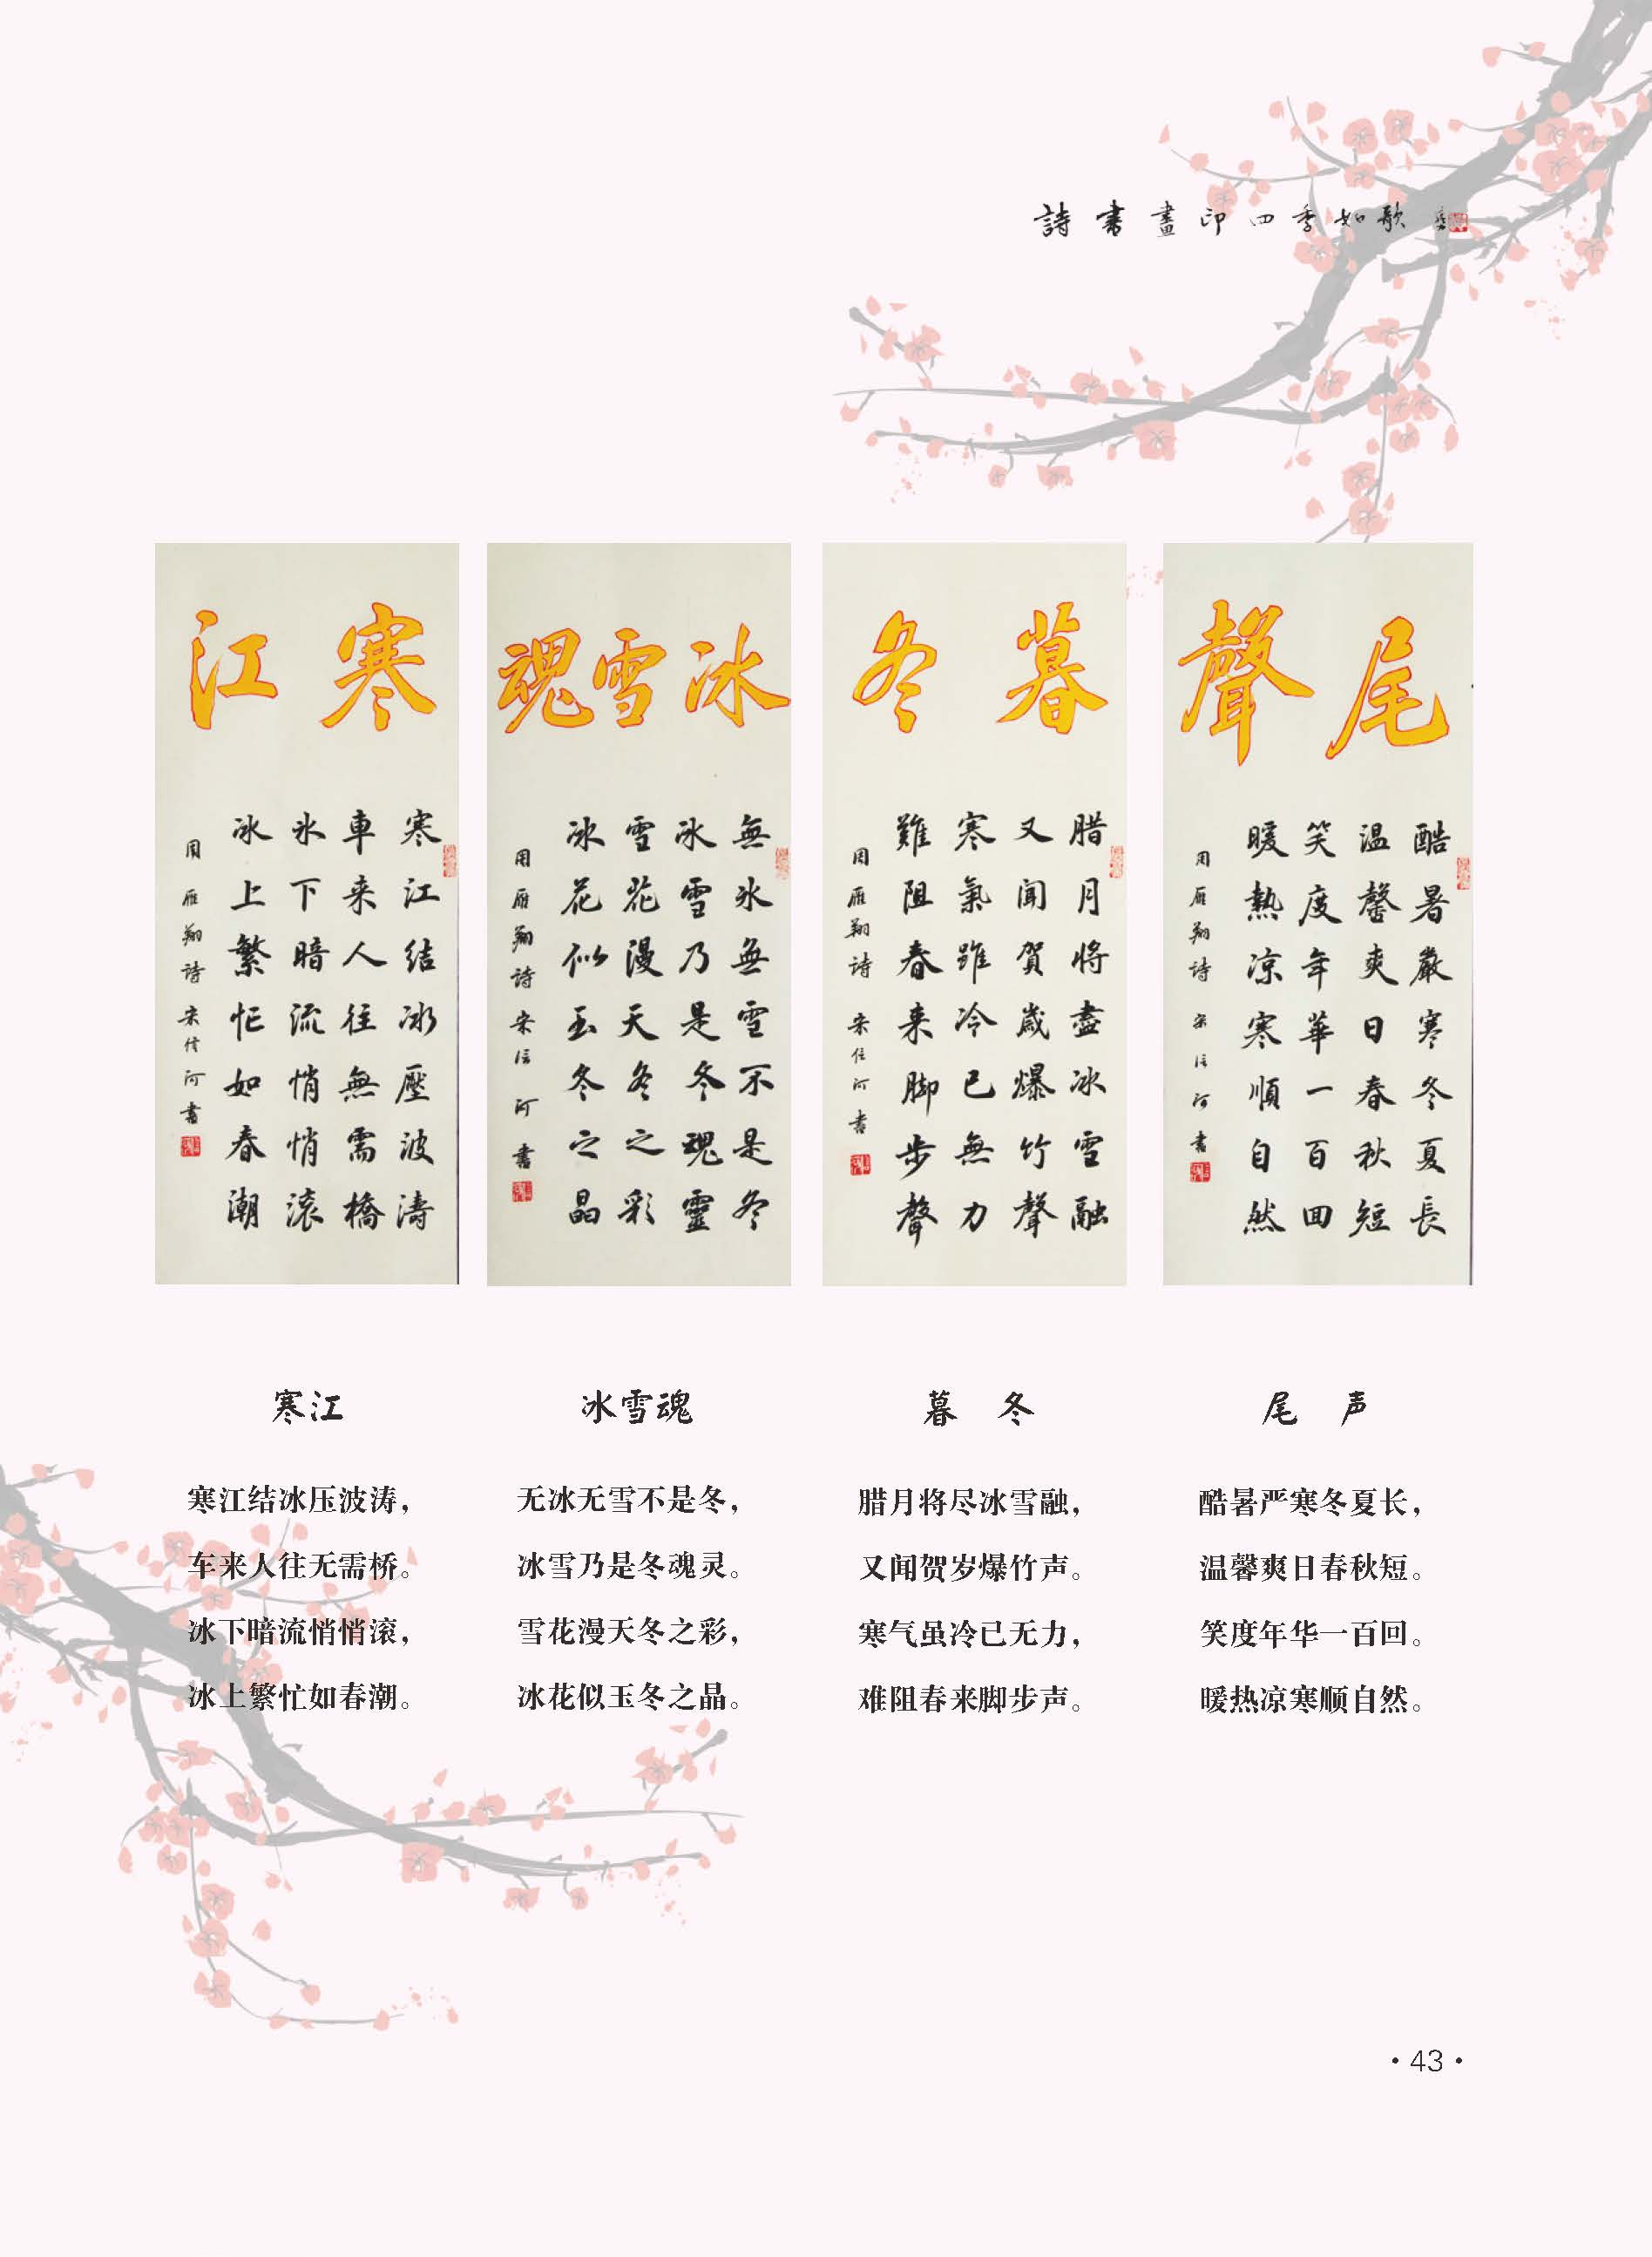 詩書畫印四季如歌
寒江
寒江结冰壓波涛
車来人往無需橋
氷下暗流悄悄滚
冰上繁忙如春潮
周雁翔诗 宋信河書
冰雪魂
無氷無雪不是冬
冰雪乃是冬魂靈
雪花漫天冬之彩
冰花似玉冬之晶
周雁翔詩 宋信河書
暮冬
腊月将盡冰雪融
又闻賀歲爆竹聲
寒氣雖冷已無力
難阻春来脚步聲
周雁翔诗 宋信河書
尾聲
酷暑嚴寒冬夏長
温馨爽日春秋短
笑度年華一百回
暖熱凉寒順自然
周雁翔诗 宋信河書
寒江
寒江结冰压波涛，
车来人往无需桥。
冰下暗流悄悄滚，
冰上繁忙如春潮。
冰雪魂
无冰无雪不是冬，
冰雪乃是冬魂灵。
雪花漫天冬之彩，
冰花似玉冬之晶。
暮 冬
腊月将尽冰雪融，
又闻贺岁爆竹声。
寒气虽冷已无力，
难阻春来脚步声。
尾 声
酷暑严寒冬夏长，
温馨爽日春秋短。
笑度年华一百回。
暖热凉寒顺自然。
·43·